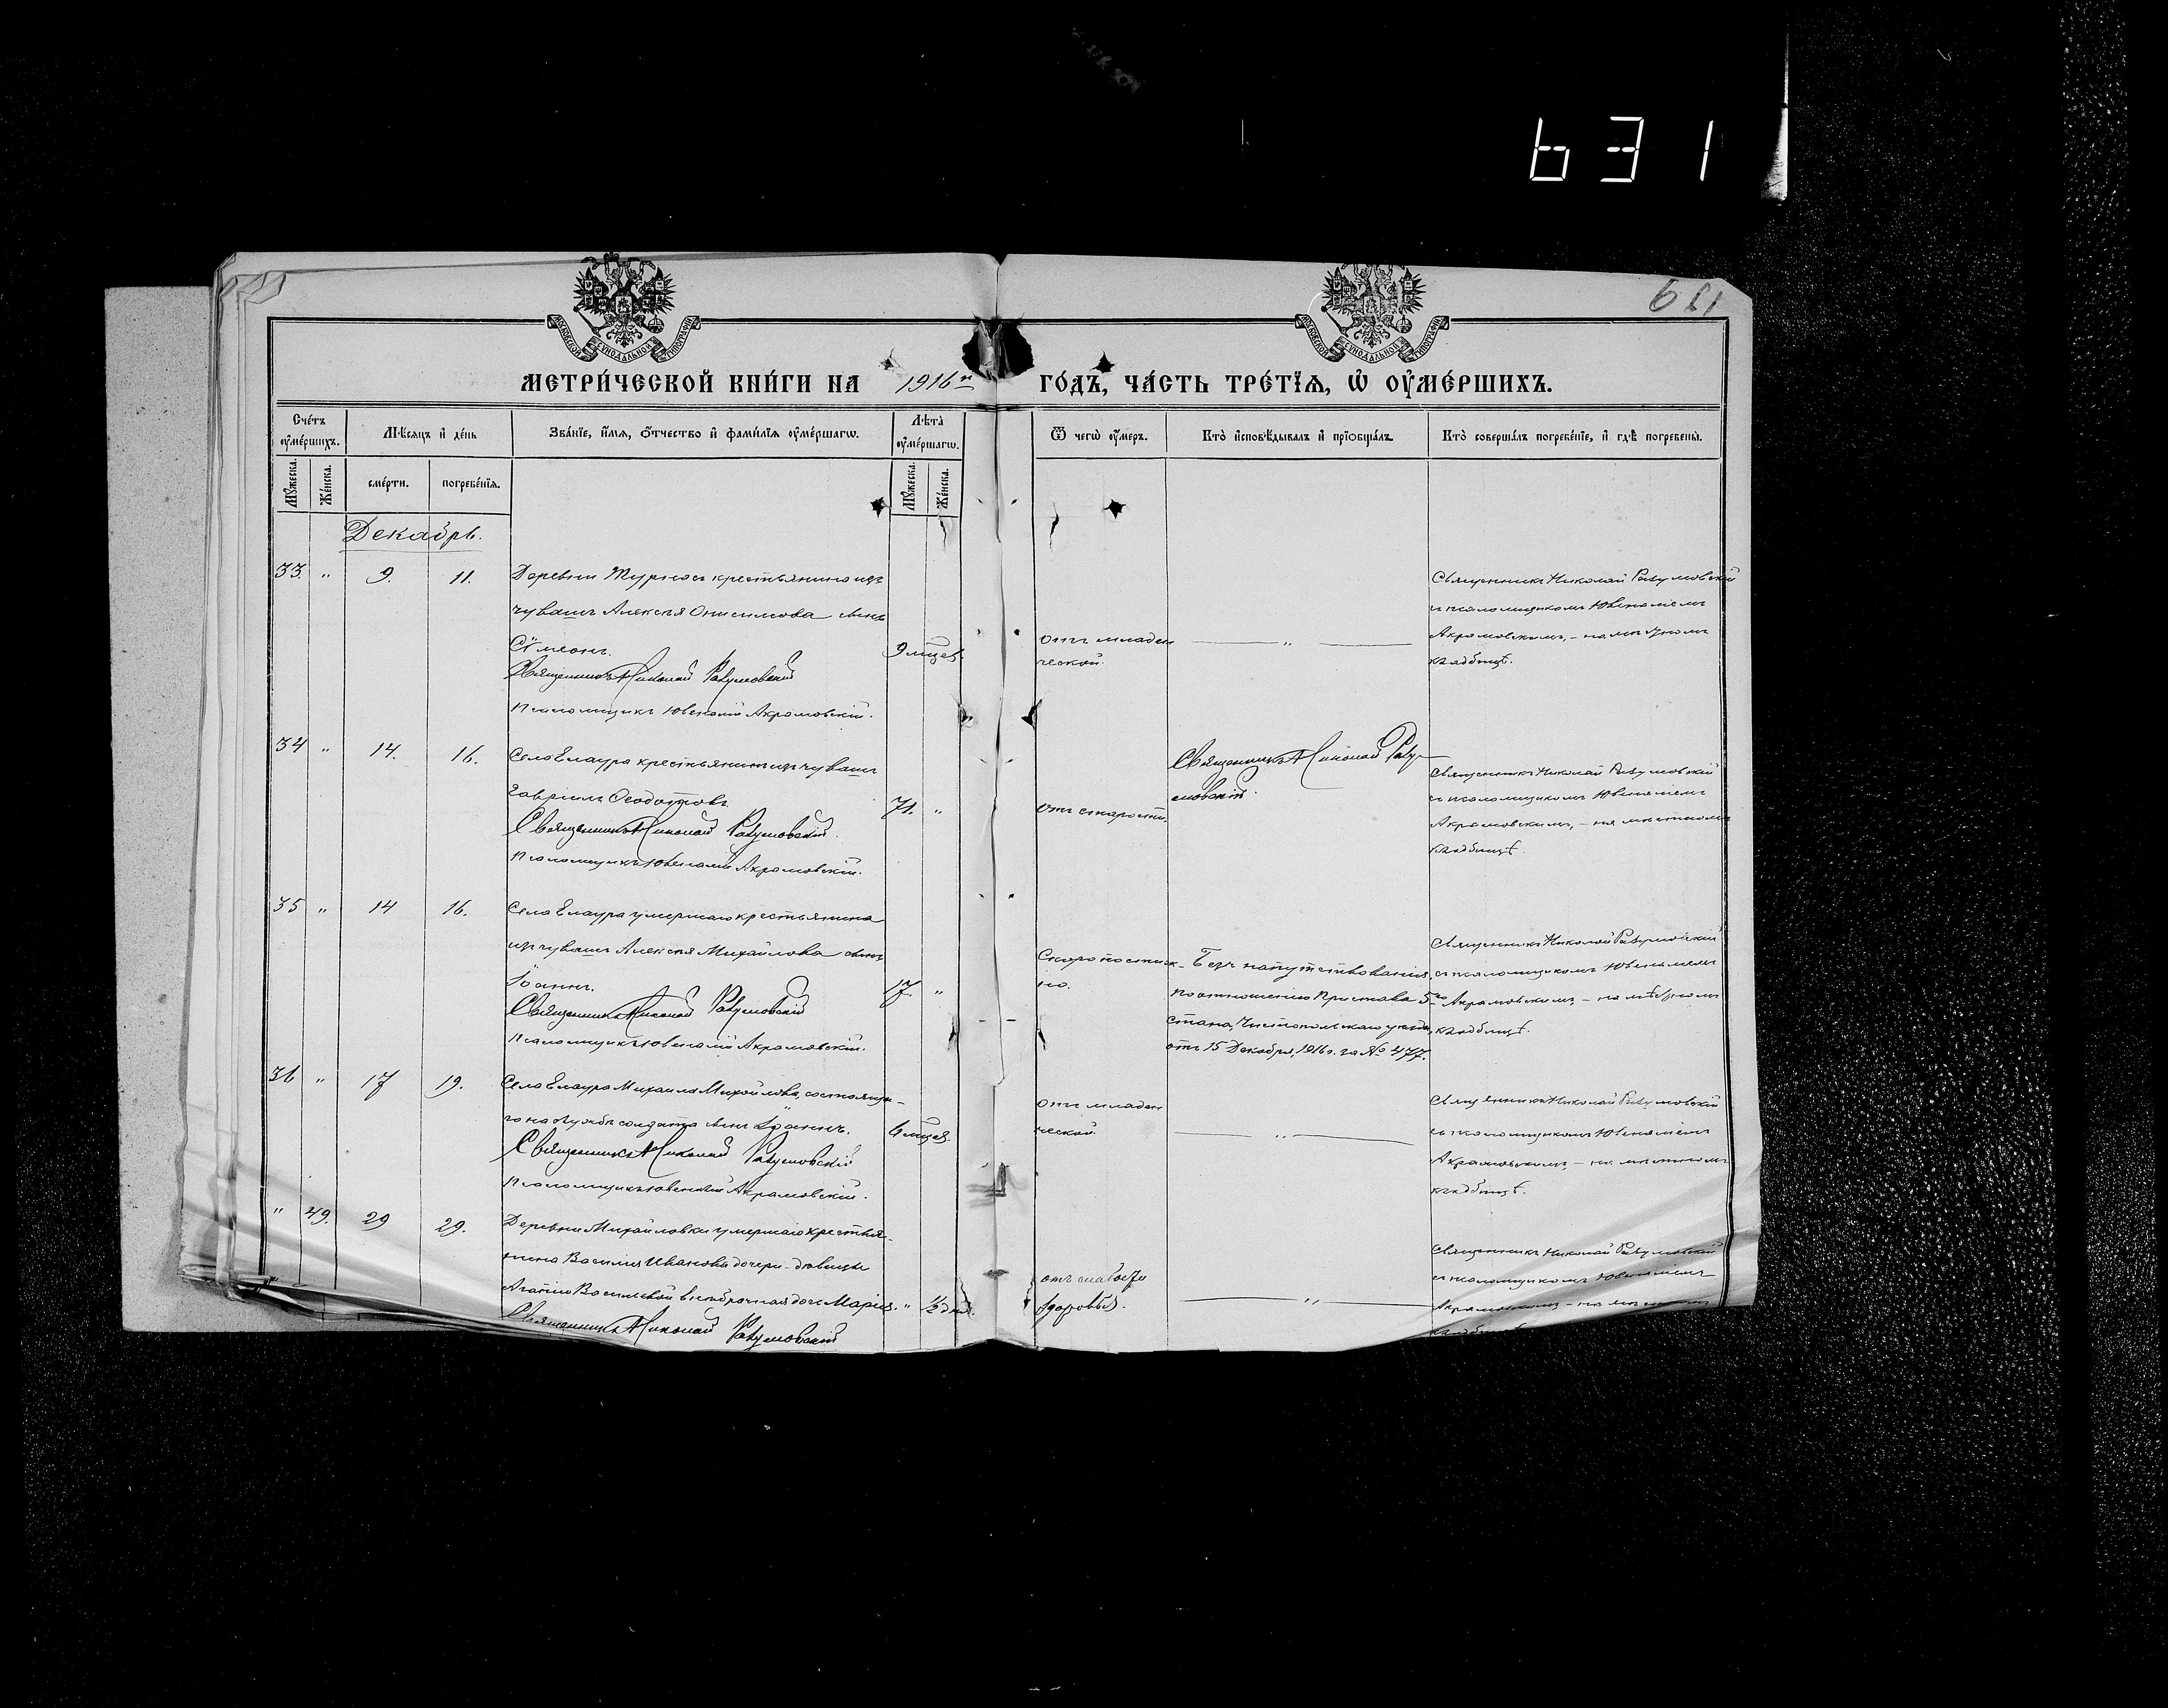 631
611
МОСКОВСКОЙ СѴНОДАЛЬНОЙ ТИПОГРАФІИ
МОСКОВСКОЙ СѴНОДАЛЬНОЙ ТИПОГРАФІИ
МЕТРИ́ЧЕСКОЙ КНИ́ГИ НА 1916й ГО́ДЪ, ЧА́СТЬ ТРЕ́ТЇѦ, Ѡ҆ ОУ҆МЕ́РШИХЪ.
Сче́тъ оу҆ме́ршихъ.
Мѣ́сяцъ и҆ де́нь
Зва́нїе, и҆́мѧ, ѻ҆́тчество и҆ фами́лїѧ оу҆ме́ршагѡ.
Лѣ́та оу҆ме́ршагѡ.
Ѿ чегѡ̀ оу҆́меръ.
Кто̀ и҆сповѣ́дывалъ и҆ прїѡбща́лъ.
Кто̀ соверша́лъ погребе́нїе, и҆ гдѣ̀ погребены̀.
Мꙋ́жеска.
Же́нска.
сме́рти.
погребе́нїѧ.
Мꙋ́жеска.
Же́нска.
Декабрь.
33. " 9. 11.
Деревни крестьянина изъ
чувашъ Алексѣя Онисимова сынъ
Сѵмеонъ.
Священникъ Николай Разумовскій
Псаломщикъ Ювеналій Акрамовскій.
9 мѣцев.
отъ младен
ческой.
"
Священникъ Николай Разумовскій
съ псаломщикомъ Ювеналіемъ
Акрамовскимъ, – на мѣстномъ
кладбищѣ.
34 " 14. 16.
Села Елаура крестьянинъ изъ чувашъ
Гавріилъ Ѳеодотовъ.
Священникъ Николай Разумовскій.
Псаломщикъ Ювеналій Акрамовскій.
71. "
отъ старости.
Священникъ Николай Разу-
мовскій.
Священникъ Николай Разумовскій
съ псаломщикомъ Ювеналіемъ
Акрамовскимъ, – на мѣстномъ
кладбищѣ.
35 " 14 16.
Села Елаура умершаго крестьянина
изъ чувашъ Алексѣя Михайлова сынъ
Іоаннъ.
Священникъ Николай Разумовскій
Псаломщикъ Ювеналій Акрамовскій.
17. "
Скоропостиж-
но.
Безъ напутствованія,
по отношенію Пристава 5го
стана, Чистопольскаго уѣзда,
отъ 15 Декабря, 1916 г. за № 477.
Священникъ Николай Разумовскій
съ псаломщикомъ Ювеналіемъ
Акрамовскимъ, – на мѣстномъ
кладбищѣ.
36 " 17 19.
Села Елаура Михаила Михайлова, состояща-
го на службѣ солдата сынъ Іоаннъ.
Священникъ Николай Разумовскій
Псаломщикъ Ювеналій Акрамовскій.
6 мѣцев.
отъ младен
ческой.
"
Священникъ Николай Разумовскій
съ псаломщикомъ Ювеналіемъ
Акрамовскимъ, – на мѣстномъ
кладбищѣ.
" 49. 29 29.
Деревни Михайловки умершаго крестья-
нина Василія Иванова дочери-дѣвицы
Агапіи Васильевой внѣбрачная дочь Марія.
Священникъ Николай Разумовскій
" ½ дня.
отъ слабости
здоровья.
"
Священникъ Николай Разумовскій
съ псаломщикомъ Ювеналіемъ
Акрамовскимъ – на мѣстномъ
кладбищѣ